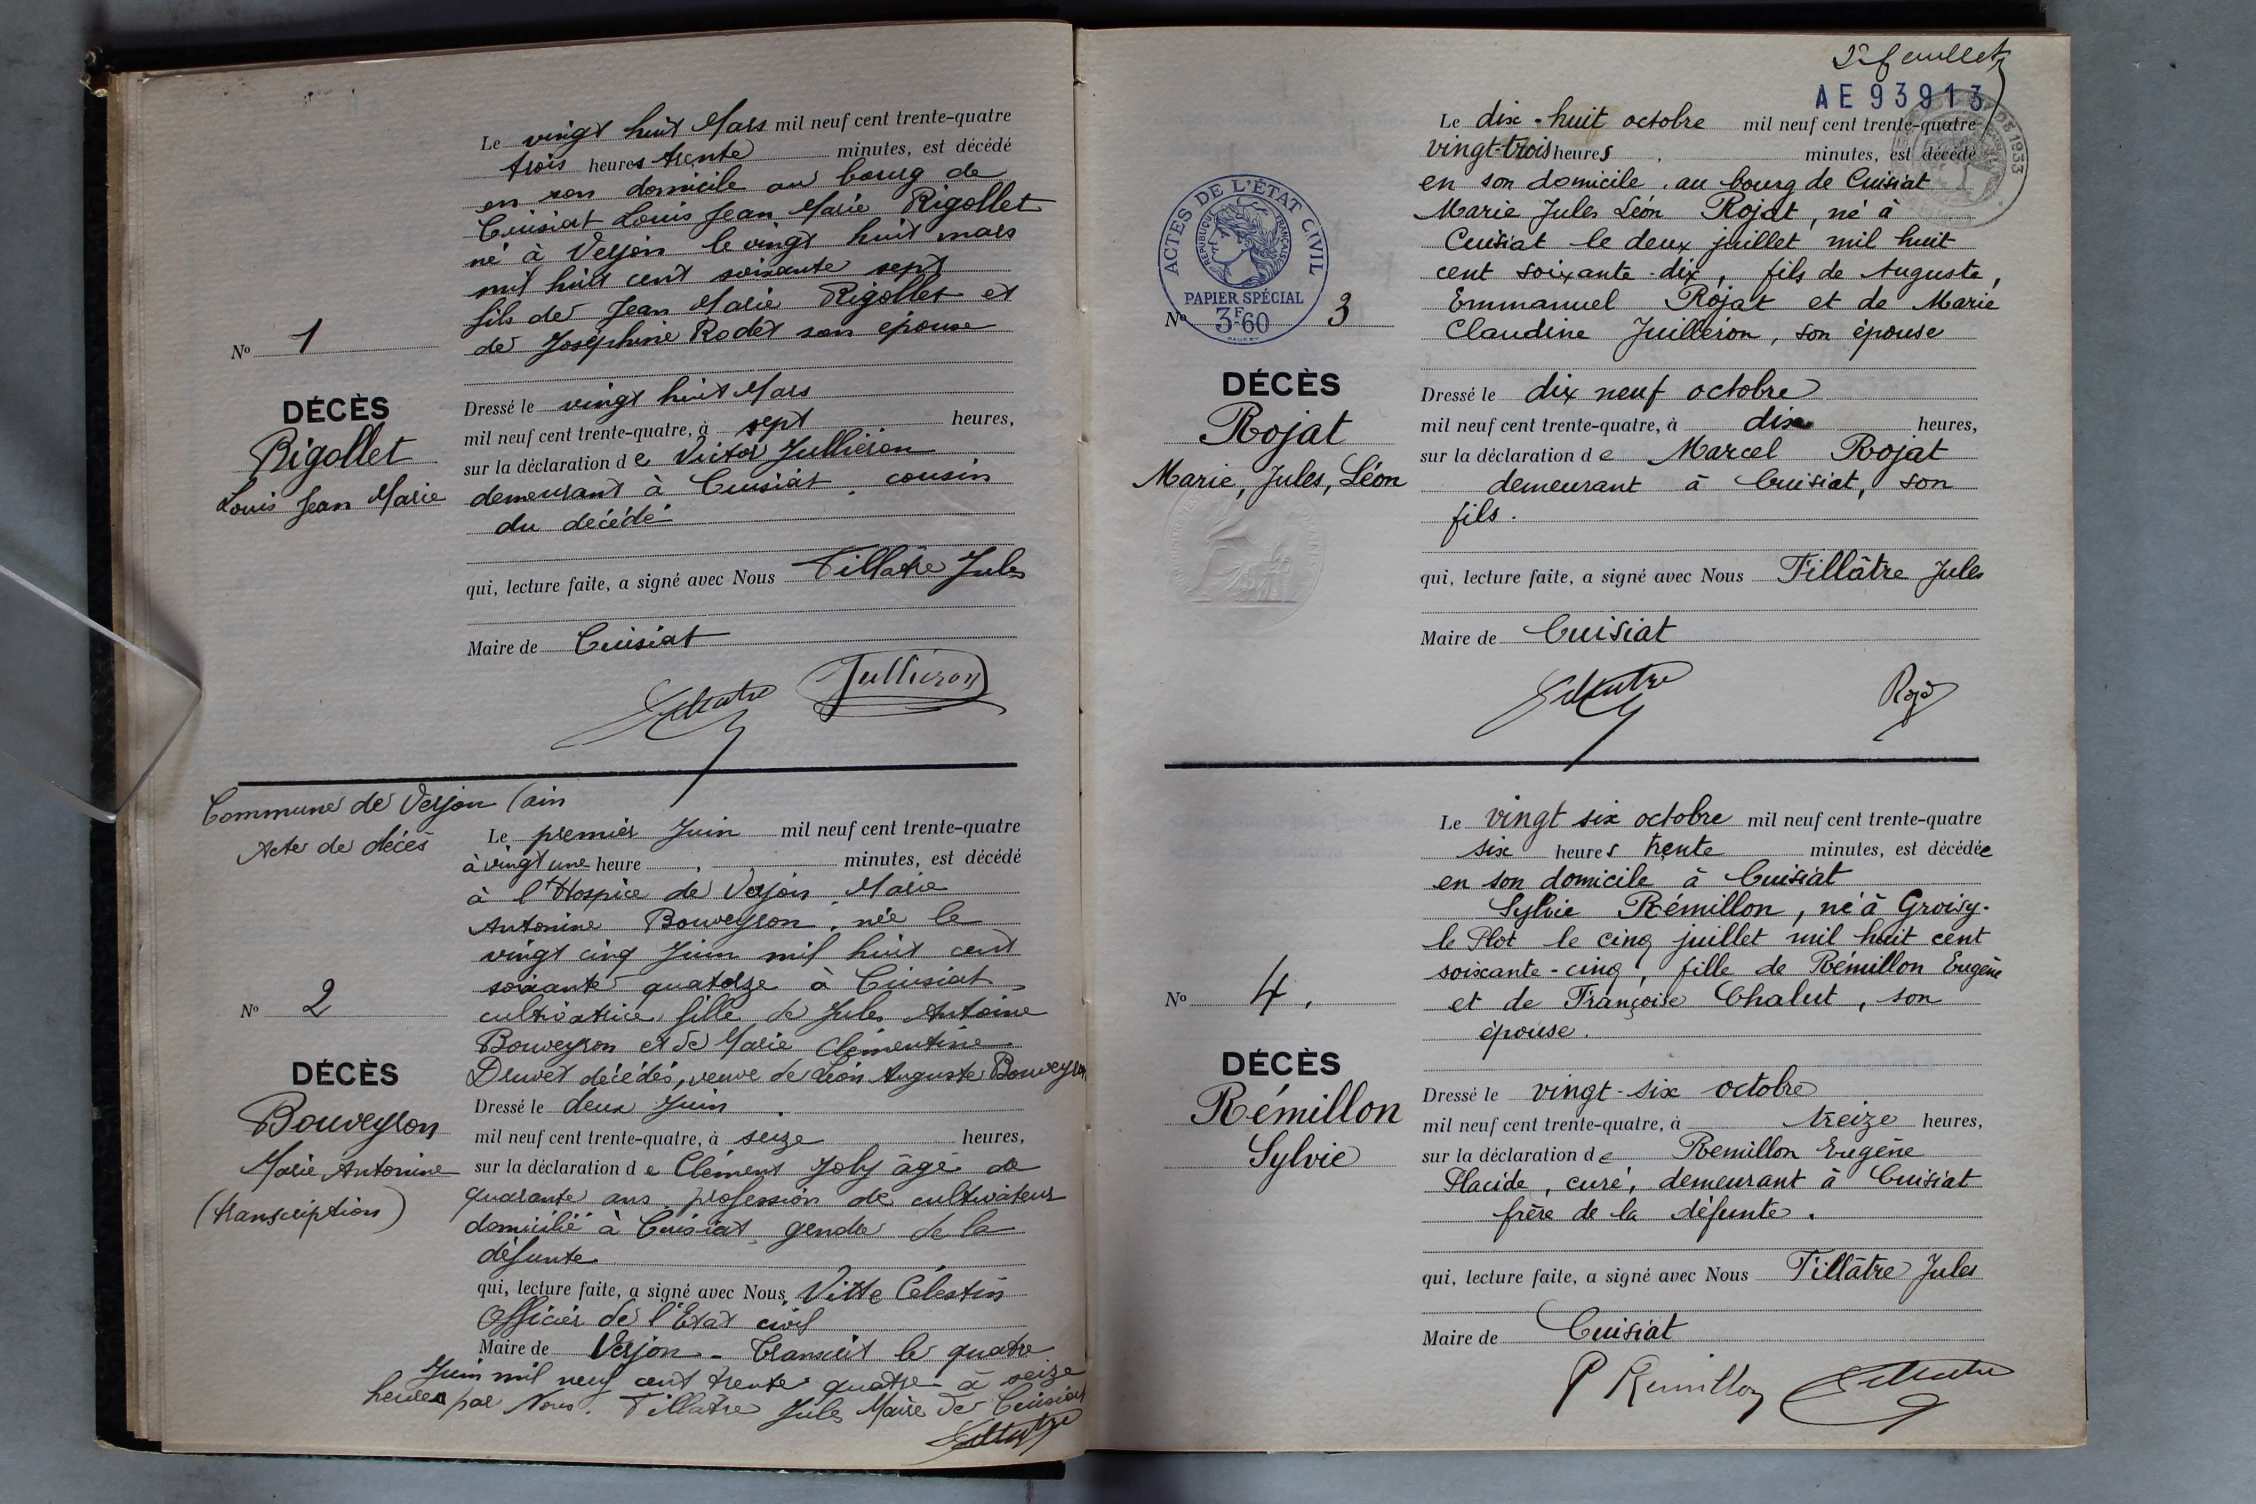 Le vingt huit Mars mil neuf cent trente-quatre
trois heures trente minutes, est décédé
en son domicile au bourg de
Cuisiat Louis Jean Marie Rigollet
né à Verjon le vingt huit mars
mil huit cent soixante sept
fils de Jean Marie Rigollet et
de Joséphine Rodet son épouse
Nº 1
DÉCÈS
Rigollet
Louis Jean Marie
Dressé le vingt huit Mars
mil neuf cent trente-quatre, à sept heures,
sur la déclaration de Victor Jullieron
demeurant à Cuisiat, cousin
du décédé
qui, lecture faite, a signé avec Nous Tillâtre Jules
Maire de Cuisiat
Tillatre Jullieron
Commune de Verjon (ain
Acte de décès
Le premier Juin mil neuf cent trente-quatre
à vingt une heure, minutes, est décédé
à l'Hospice de Verjon, Marie
Antonine Bouveyron, née le
vingt cinq Juin mil huit cent
soixante quatorze à Cuisiat
cultivatrice fille de Jules Antoine
Bouveyron et de Marie Clémentine
Druet décédés, veuve de Léon Auguste Bouveyron
Nº 2
DÉCÈS
Bouveyron
Marie Antonine
(transcription)
Dressé le deux Juin.
mil neuf cent trente-quatre, à seize heures,
sur la déclaration de Clément Joly âgé de
quarante ans profession de cultivateur
domicilié à Cuisiat, gendre de la
défunte
qui, lecture faite, a signé avec Nous, Vitte Célestin
Officier de l'Etat civil
Maire de Verjon - Transcrit le quatre
Juin mil neuf cent trente quatre à seize
heures par Nous. Tillatre Jules Maire de Cuisiat
Tillatre
2e feuillet
AE 93913
ACTES DE L'ÉTAT CIVIL
RÉPUBLIQUE FRANÇAISE
PAPIER SPÉCIAL
3F60
1933
Le dix-huit octobre mil neuf cent trente-quatre
vingt-trois heures. minutes, est décédé
en son domicile, au bourg de Cuisiat
Marie Jules Léon Rojat, né à
Cuisiat le deux juillet mil huit
cent soixante-dix, fils de Auguste,
Emmanuel Rojat et de Marie
Claudine Juilléron, son épouse
Nº 3
DÉCÈS
Rojat
Marie, Jules, Léon
Dressé le dix neuf octobre
mil neuf cent trente-quatre, à dix heures,
sur la déclaration de Marcel Rojat
demeurant à Cuisiat, son
fils.
qui, lecture faite, a signé avec Nous Tillâtre Jules
Maire de Cuisiat
Tillatre Rojat
Le vingt six octobre mil neuf cent trente-quatre
six heures trente minutes, est décédée
en son domicile à Cuisiat
Sylvie Rémillon, né à Groisy-
le Plot le cinq juillet mil huit cent
soixante-cinq, fille de Rémillon Eugène
et de Françoise Chalut, son
épouse.
Nº 4.
DÉCÈS
Rémillon
Sylvie
Dressé le vingt-six octobre
mil neuf cent trente-quatre, à treize heures,
sur la déclaration de Remillon Eugène
Placide, curé, demeurant à Cuisiat
frère de la défunte.
qui, lecture faite, a signé avec Nous Tillâtre Jules
Maire de Cuisiat
P Remillon Tillatre